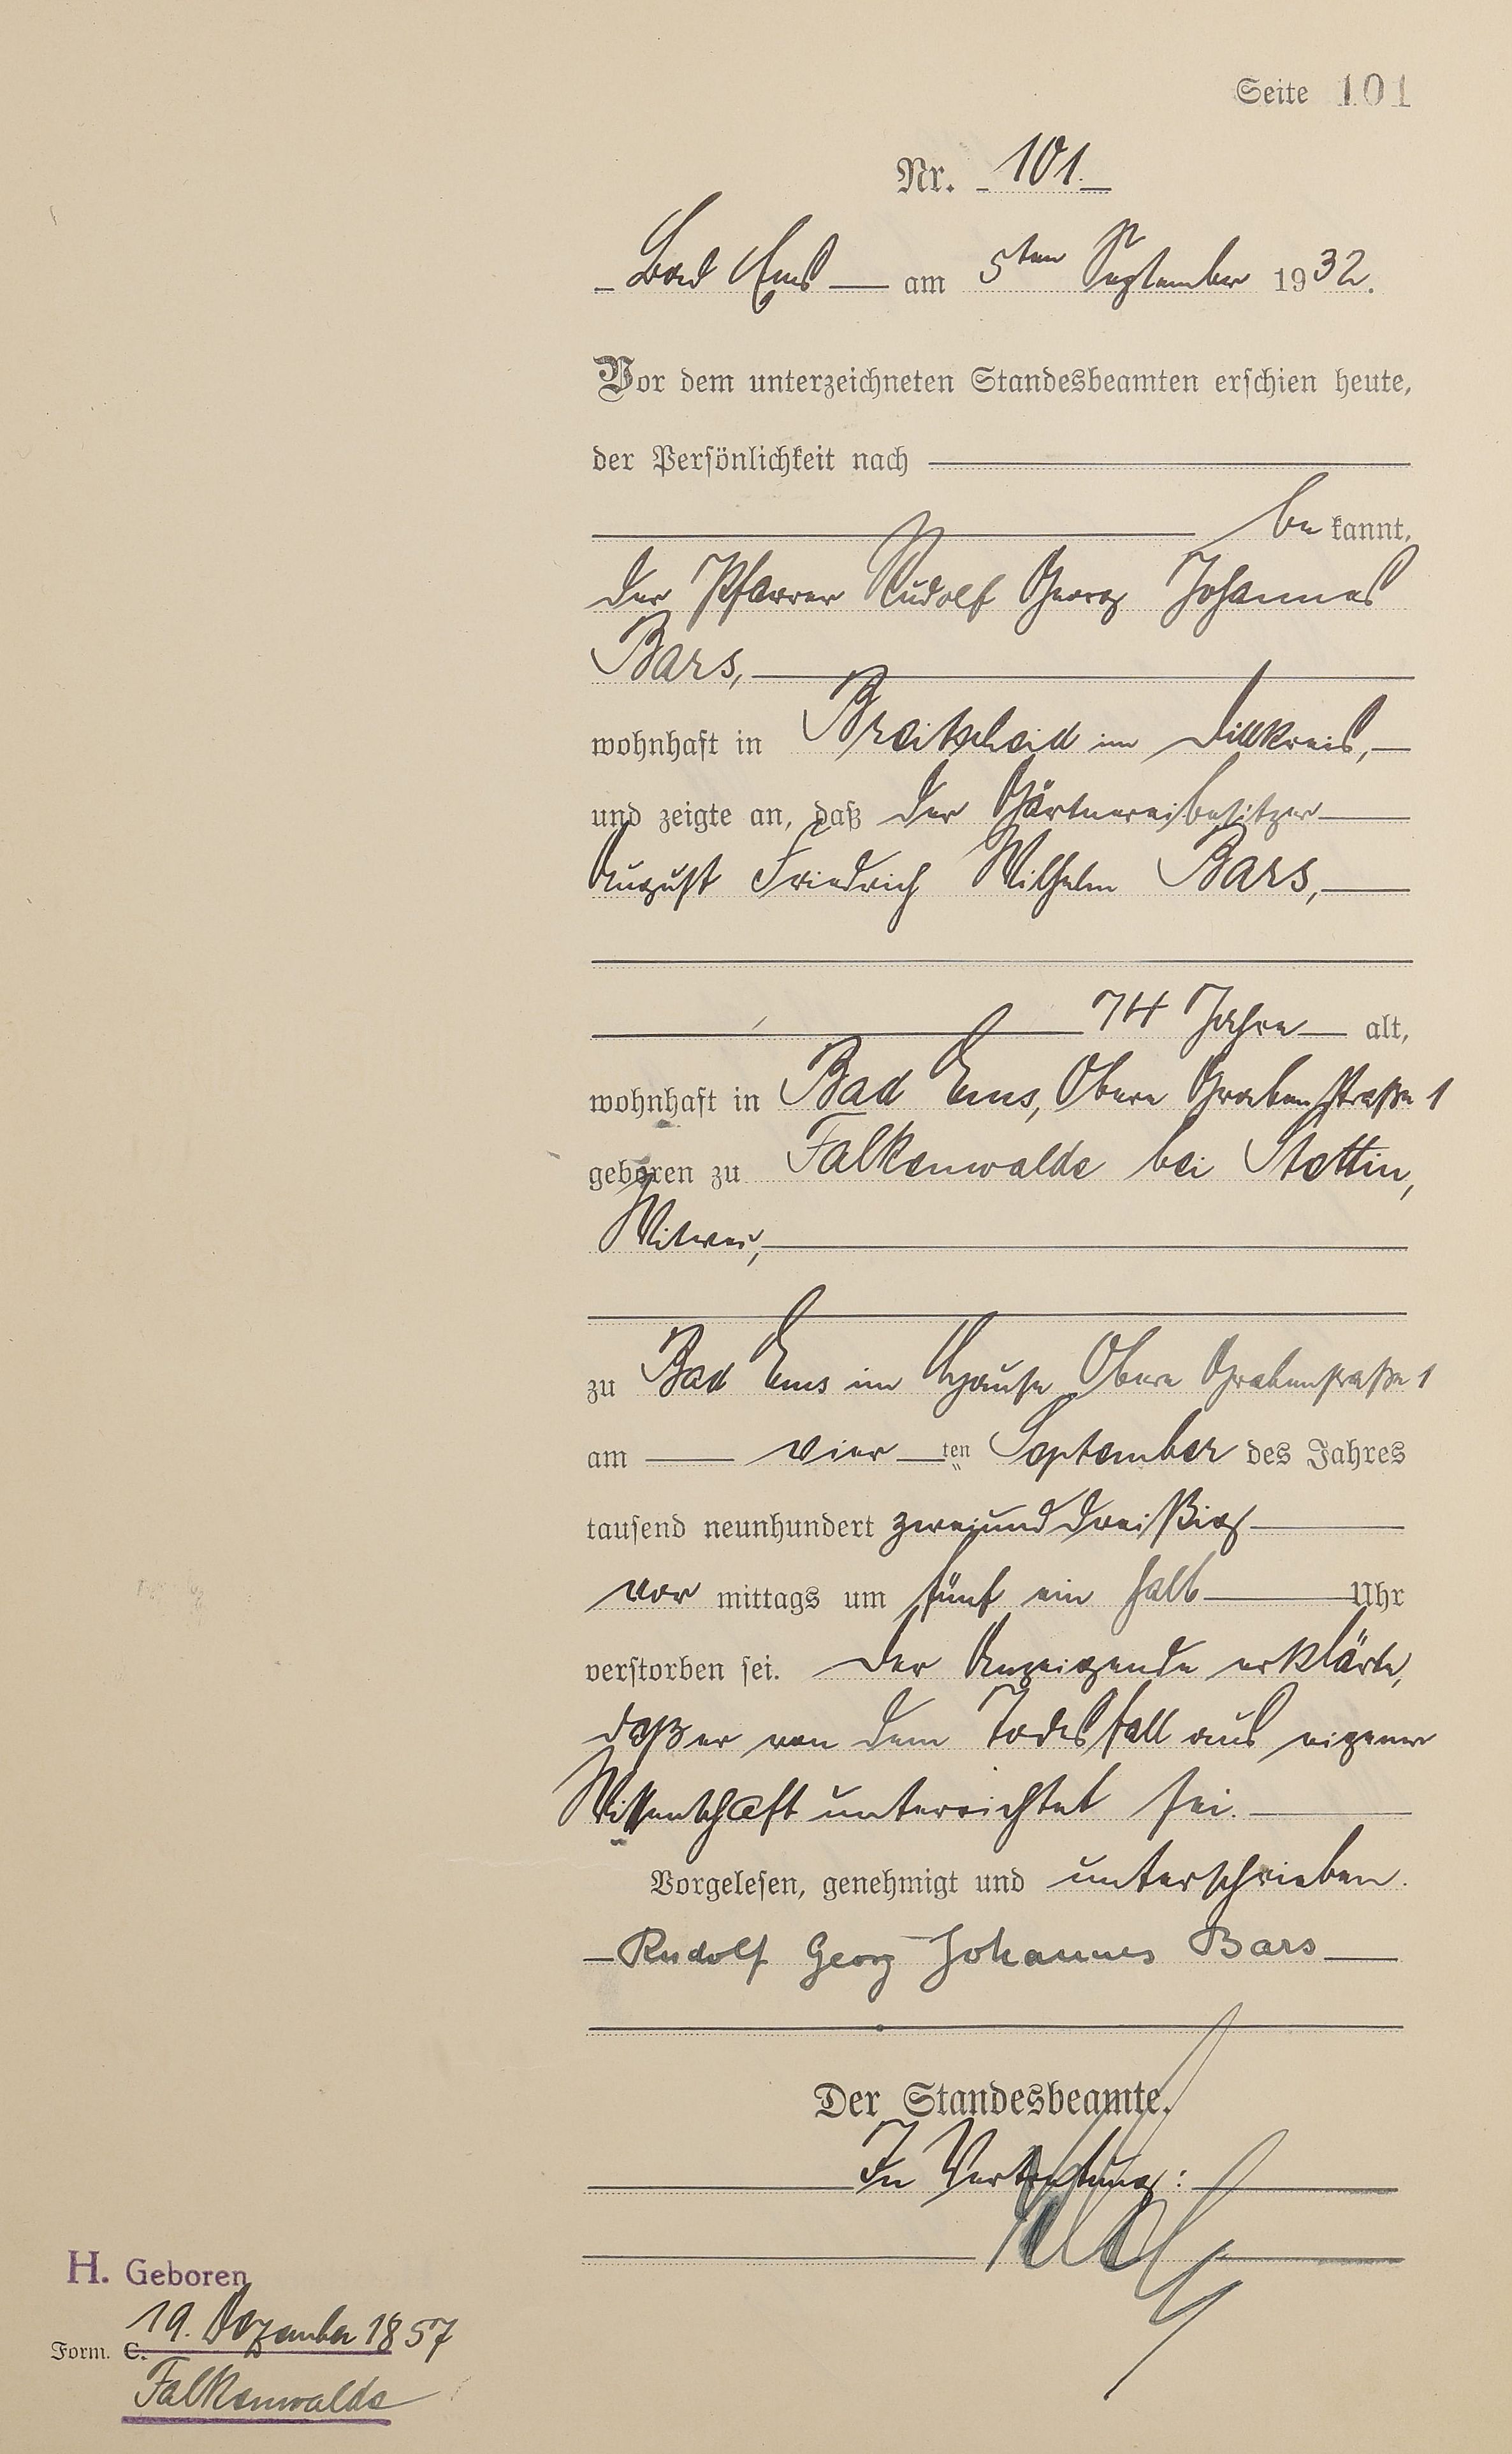 Seite 101
Nr. 101.
Bad Ems am 5ten September 1932.
Vor dem unterzeichneten Standesbeamten erschien heute,
der Persönlichkeit nach
be kannt,
der Pfarrer Rudolf Georg Johannes
Bars,
wohnhaft in Breitscheid im Dillkreis,
und zeigte an, daß der Gärtnereibesitzer
August Friedrich Wilhelm Bars,
74 Jahre alt,
wohnhaft in Bad Ems, Obere Grabenstraße 1
geboren zu Falkenwalde bei Stettin,
Witwer,
zu Bad Ems im Hause Obere Grabenstraße 1
am vier ten September des Jahres
tausend neunhundert zweiunddreißig
vor mittags um fünf ein halb Uhr
verstorben sei. Der Anzeigende erklärte,
daß er von dem Todesfall aus eigener
Wissenschaft unterrichtet sei.
Vorgelesen, genehmigt und unterschrieben.
Rudolf Georg Johannes Bars
Der Standesbeamte.
In Vertretung:
H. Geboren
19. Dezember 1857
Form. C.
Falkenwalde